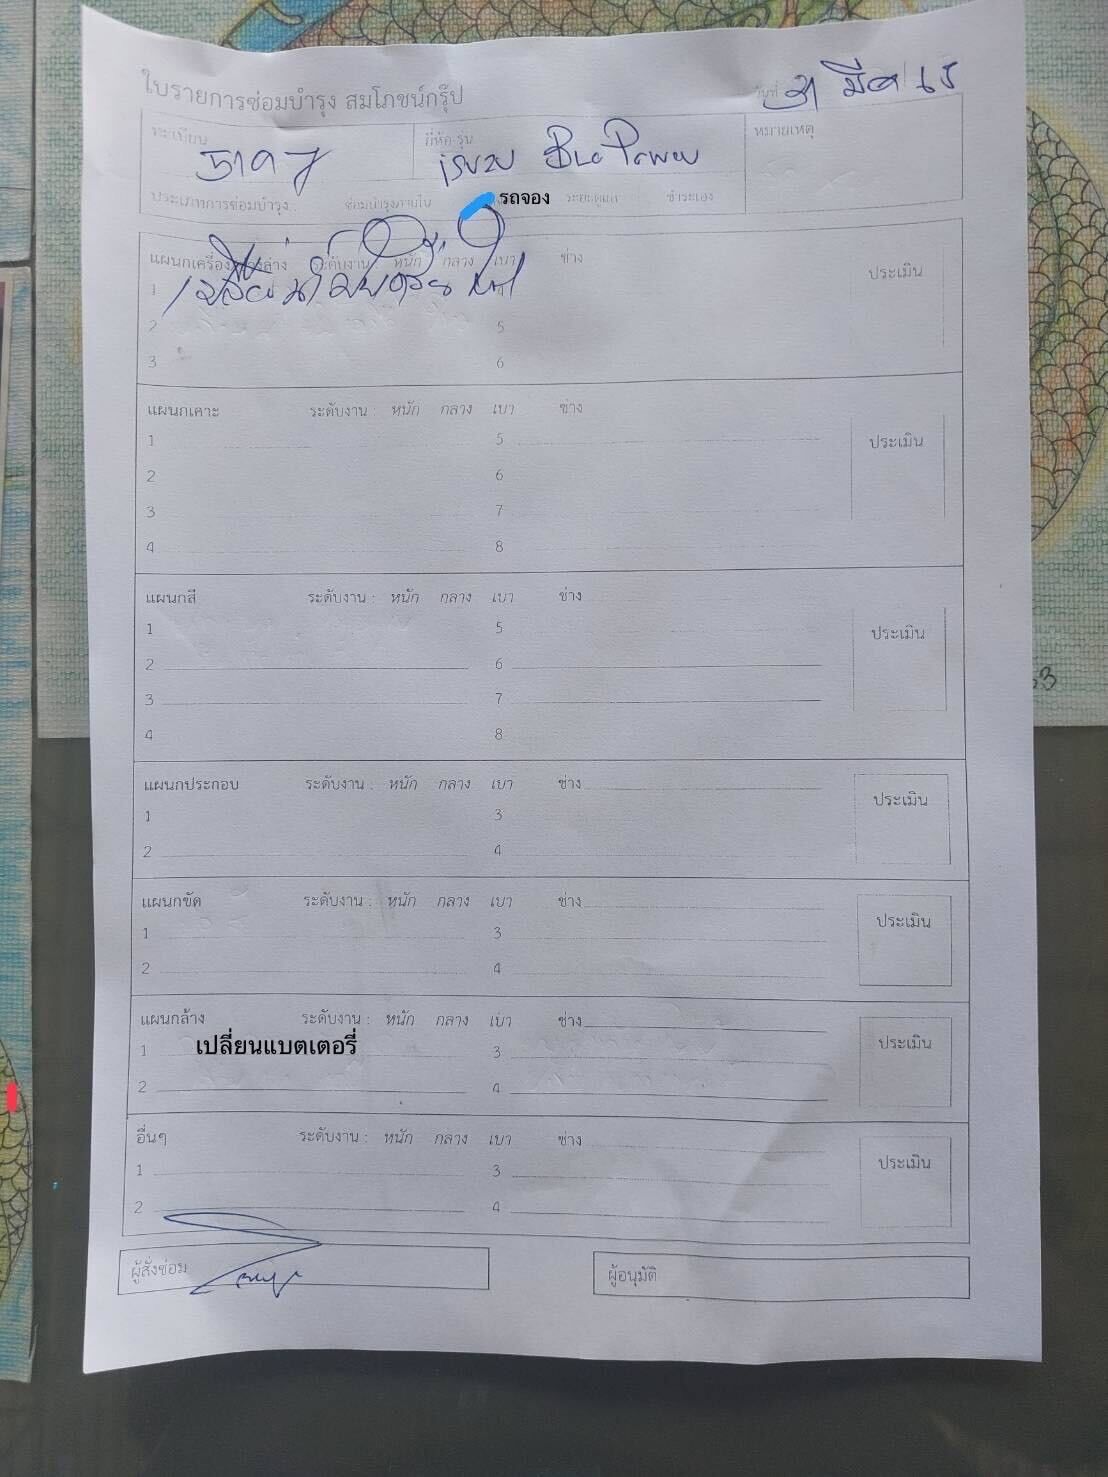 ใบรายการซ่อมบำรุง สมโภชน์กรุ๊ป
วันที่ 31 มีค 65
ทะเบียน
ยี่ห้อ รุ่น isuzu Blue Power
หมายเหตุ
ประเภทการซ่อมบำรุง : ซ่อมบำรุงภายใน รถจอง ระยะดูแล ชำระเอง
แผนกเครื่อง ช่วงล่าง ระดับงาน หนัก กลาง เบา ช่าง ประเมิน
1 เปลี่ยน
2 5
3 6
แผนกเคาะ ระดับงาน : หนัก กลาง เบา ช่าง ประเมิน
1 5
2 6
3 7
4 8
แผนกสี ระดับงาน : หนัก กลาง เบา ช่าง ประเมิน
1 5
2 6
3 7
4 8
แผนกประกอบ ระดับงาน : หนัก กลาง เบา ช่าง ประเมิน
1 3
2 4
แผนกขัด ระดับงาน : หนัก กลาง เบา ช่าง ประเมิน
1 3
2 4
แผนกล้าง ระดับงาน : หนัก กลาง เบา ช่าง ประเมิน
1 เปลี่ยนแบตเตอรี่ 3
2 4
อื่นๆ ระดับงาน : หนัก กลาง เบา ช่าง ประเมิน
1 3
2 4
ผู้สั่งซ่อม ผู้อนุมัติ
53